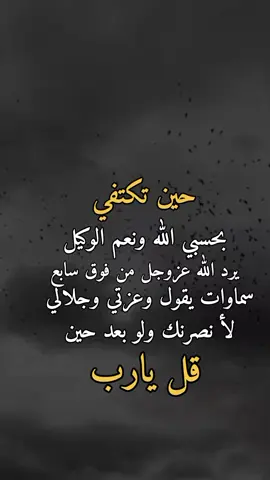 حين تكتفي
بحسبي الله ونعم الوكيل
يرد الله عزوجل من فوق سابع
سماوات يقول وعزتي وجلالي
لأ نصرنك ولو بعد حين
قل يارب